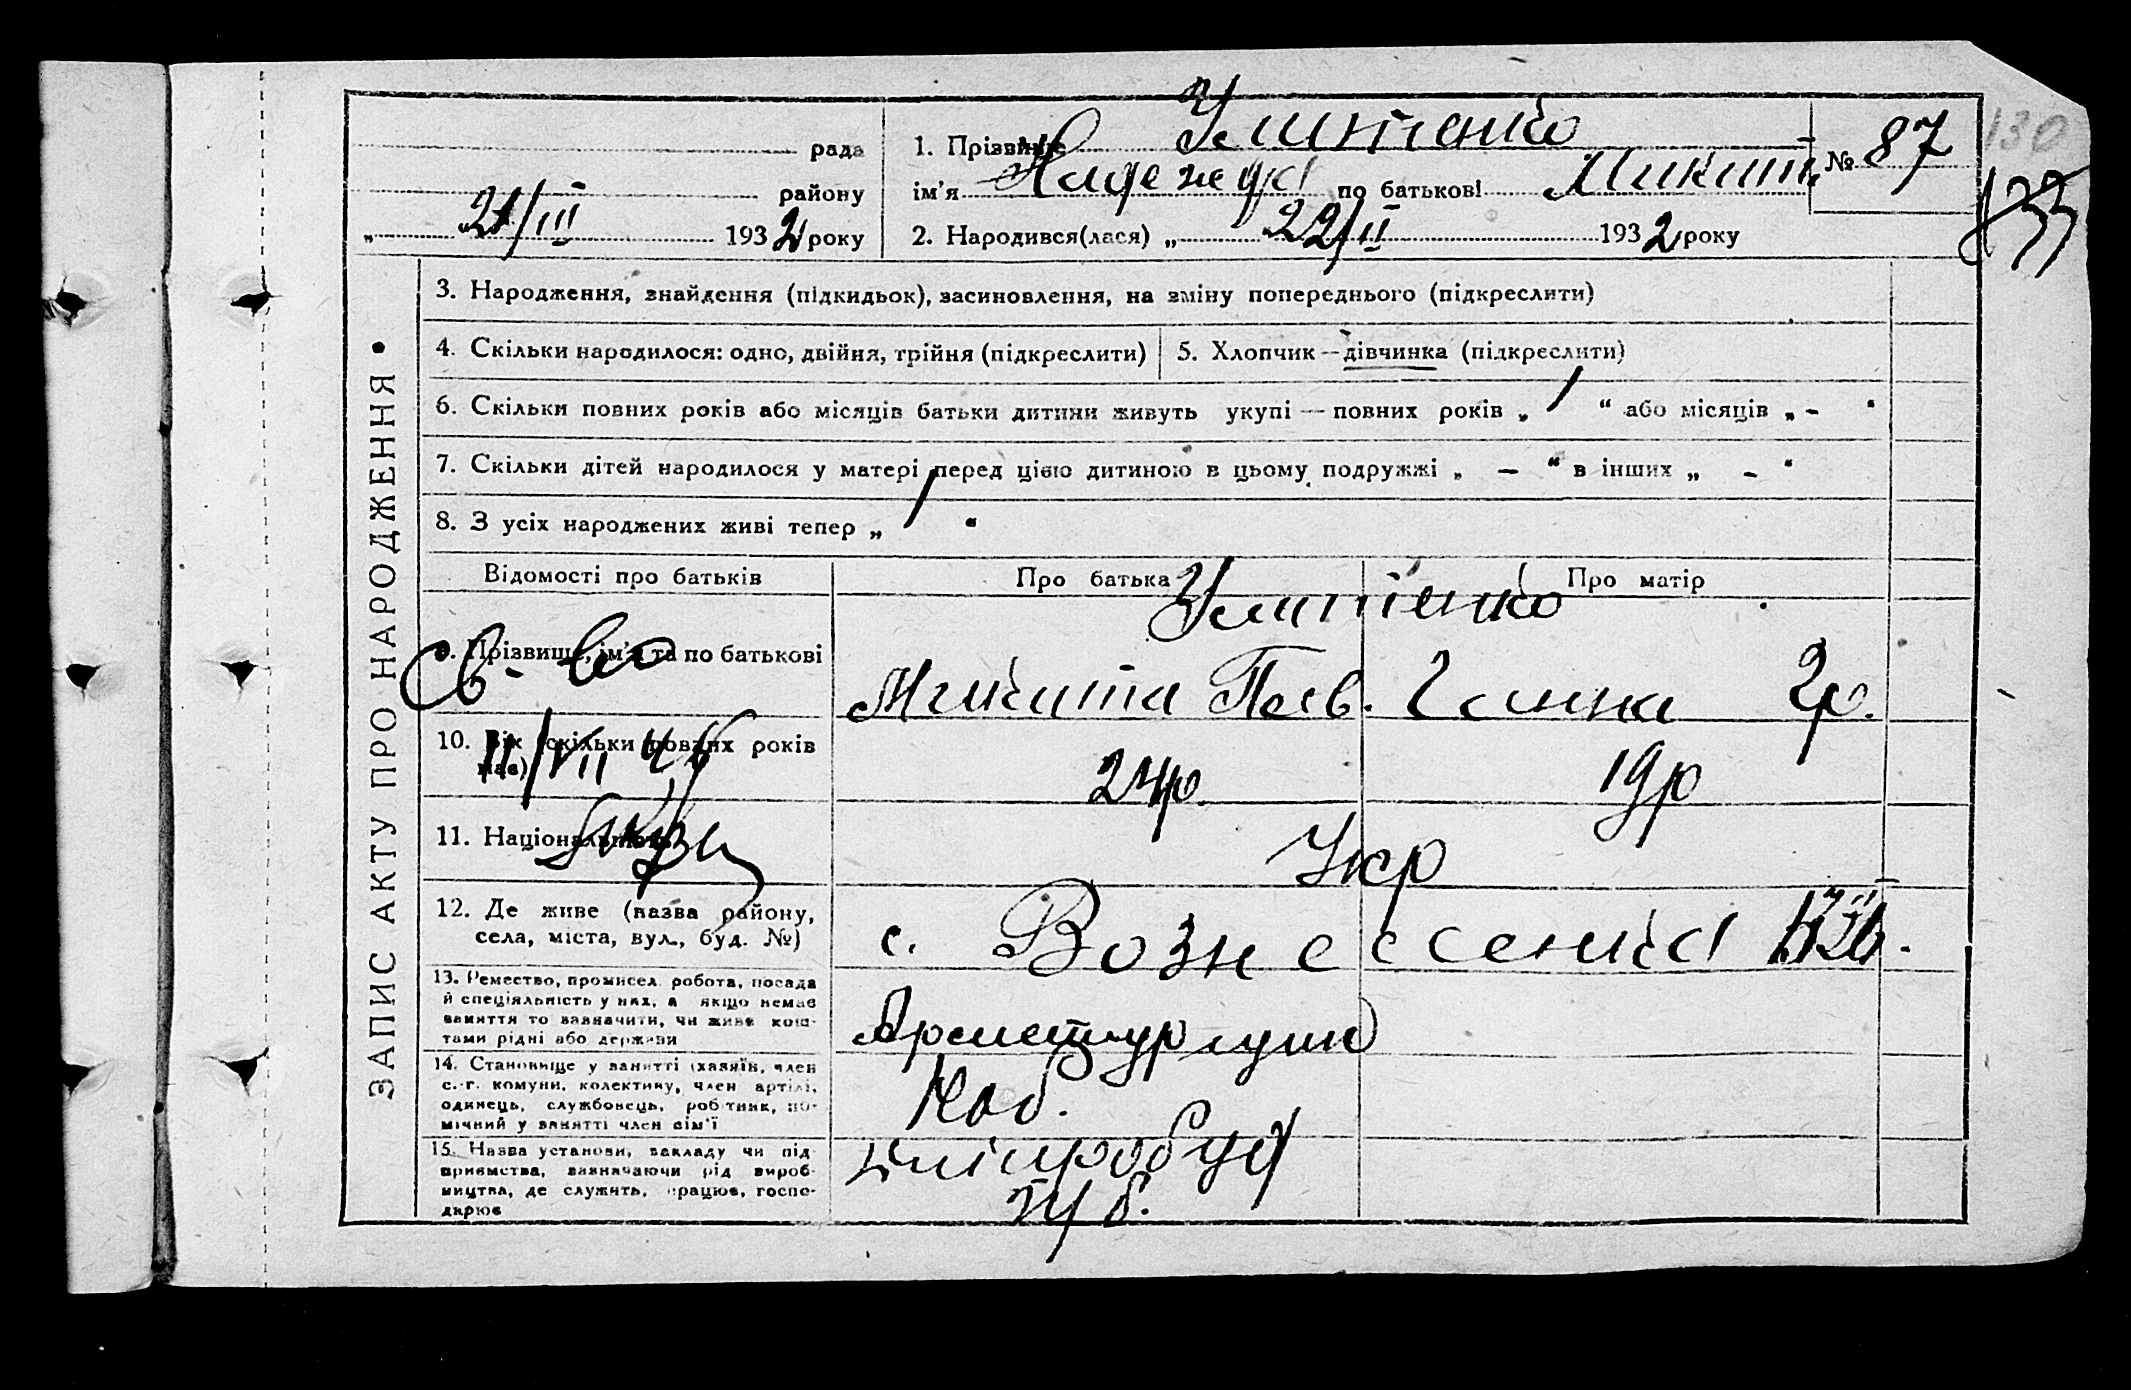 рада
району
„ 21/III 1932 року
1. Прізвище Улитенко
ім'я Надежда по батькові Микит.
2. Народився(лася) „ 22/II 1932 року
№ 87
130
ЗАПИС АКТУ ПРО НАРОДЖЕННЯ •
3. Народження, знайдення (підкидьок), засиновлення, на зміну попереднього (підкреслити)
4. Скільки народилося: одно, двійня, трійня (підкреслити)
5. Хлопчик — дівчинка (підкреслити)
6. Скільки повних років або місяців батьки дитини живуть укупі — повних років „ 1 “ або місяців „ - “
7. Скільки дітей народилося у матері перед цією дитиною в цьому подружжі „ — “ в інших „ - “
8. З усіх народжених живі тепер „ 1 “
Відомості про батьків
Про батька
Про матір
9. Прізвище, ім'я та по батькові
Улитенко
Микита Пав. Ганна Гр.
С-во
10. Вік (скільки повних років має)
11/VII 46
24р.
19р
11. Національність
Укр
12. Де живе (назва району,
села, міста, вул., буд. №)
с. Вознесенка
13. Ремество, промисел, робота, посада
й спеціяльність у них, а якщо немає
заняття то зазначити, чи живе кош-
тами рідні або держави
Арматурщик
14. Становище у занятті (хазяїн, член
с.-г. комуни, колективу, член артілі,
одинець, службовець, робітник, по-
мічний у занятті член сім'ї
Роб.
15. Назва установи, закладу чи під-
приємства, зазначаючи рід вироб-
ництва, де служить, працює, госпо-
дарює
Дніпробуд